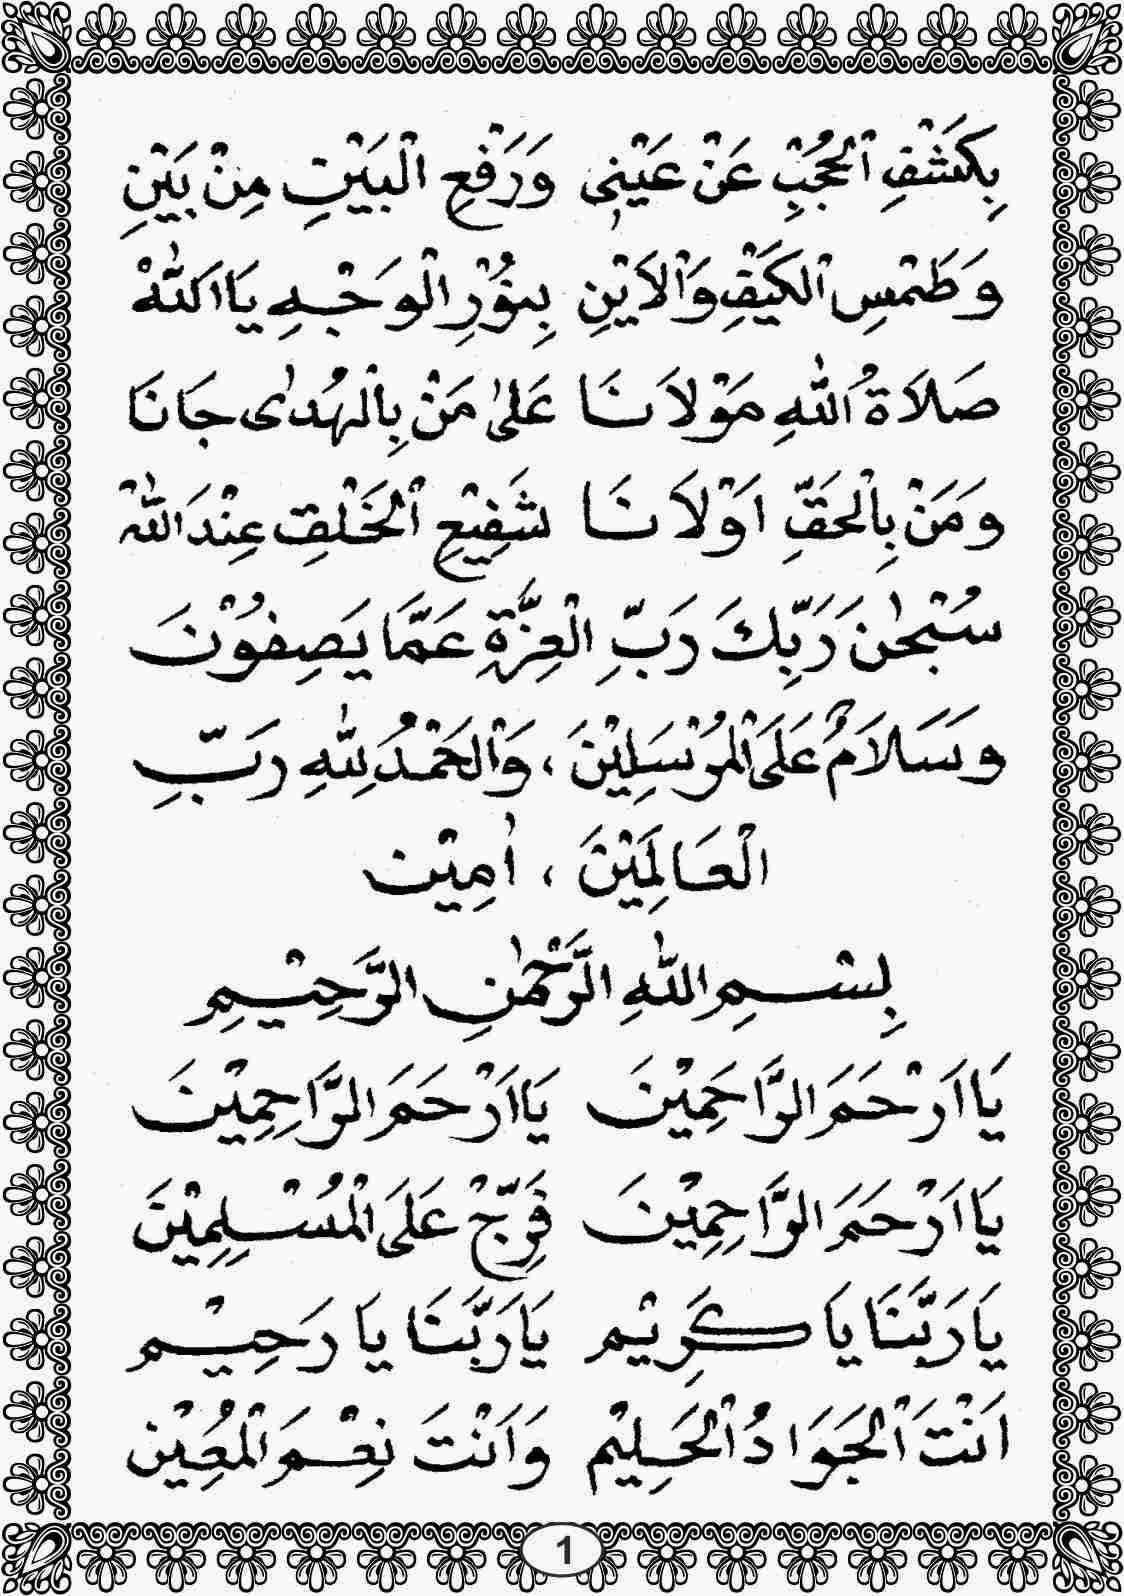 بِكَشْفِ الْحُجُبِ عَنْ عَيْنِى وَرَفْعِ الْبَيْتِ مِنْ بَيْنِ
وَطَمْسِ الْكَيْفِ وَالْاَيْنِ بِنُوْرِ الْوَجْهِ يَا اَللّٰهْ
صَلَاةُ اللّٰهِ مَوْلَانَا عَلىٰ مَنْ بِالْهُدٰى جَانَا
وَمَنْ بِالْحَقِّ اَوْلَانَا شَفِيْعِ الْخَلْقِ عِنْدَ اللّٰهْ
سُبْحٰنَ رَبِّكَ رَبِّ الْعِزَّةِ عَمَّا يَصِفُوْنَ
وَسَلَامٌ عَلَى الْمُرْسَلِيْنَ ، وَالْحَمْدُ لِلّٰهِ رَبِّ
الْعَالَمِيْنَ ، اٰمِيْن
بِسْمِ اللّٰهِ الرَّحْمٰنِ الرَّحِيْمِ
يَا اَرْحَمَ الرَّاحِمِيْنَ يَا اَرْحَمَ الرَّاحِمِيْنَ
يَا اَرْحَمَ الرَّاحِمِيْنَ فَرِّجْ عَلَى الْمُسْلِمِيْنَ
يَا رَبَّنَا يَا كَرِيْم يَا رَبَّنَا يَا رَحِيْم
اَنْتَ الْجَوَادُ الْحَلِيْم وَاَنْتَ نِعْمَ الْمُعِيْن
1